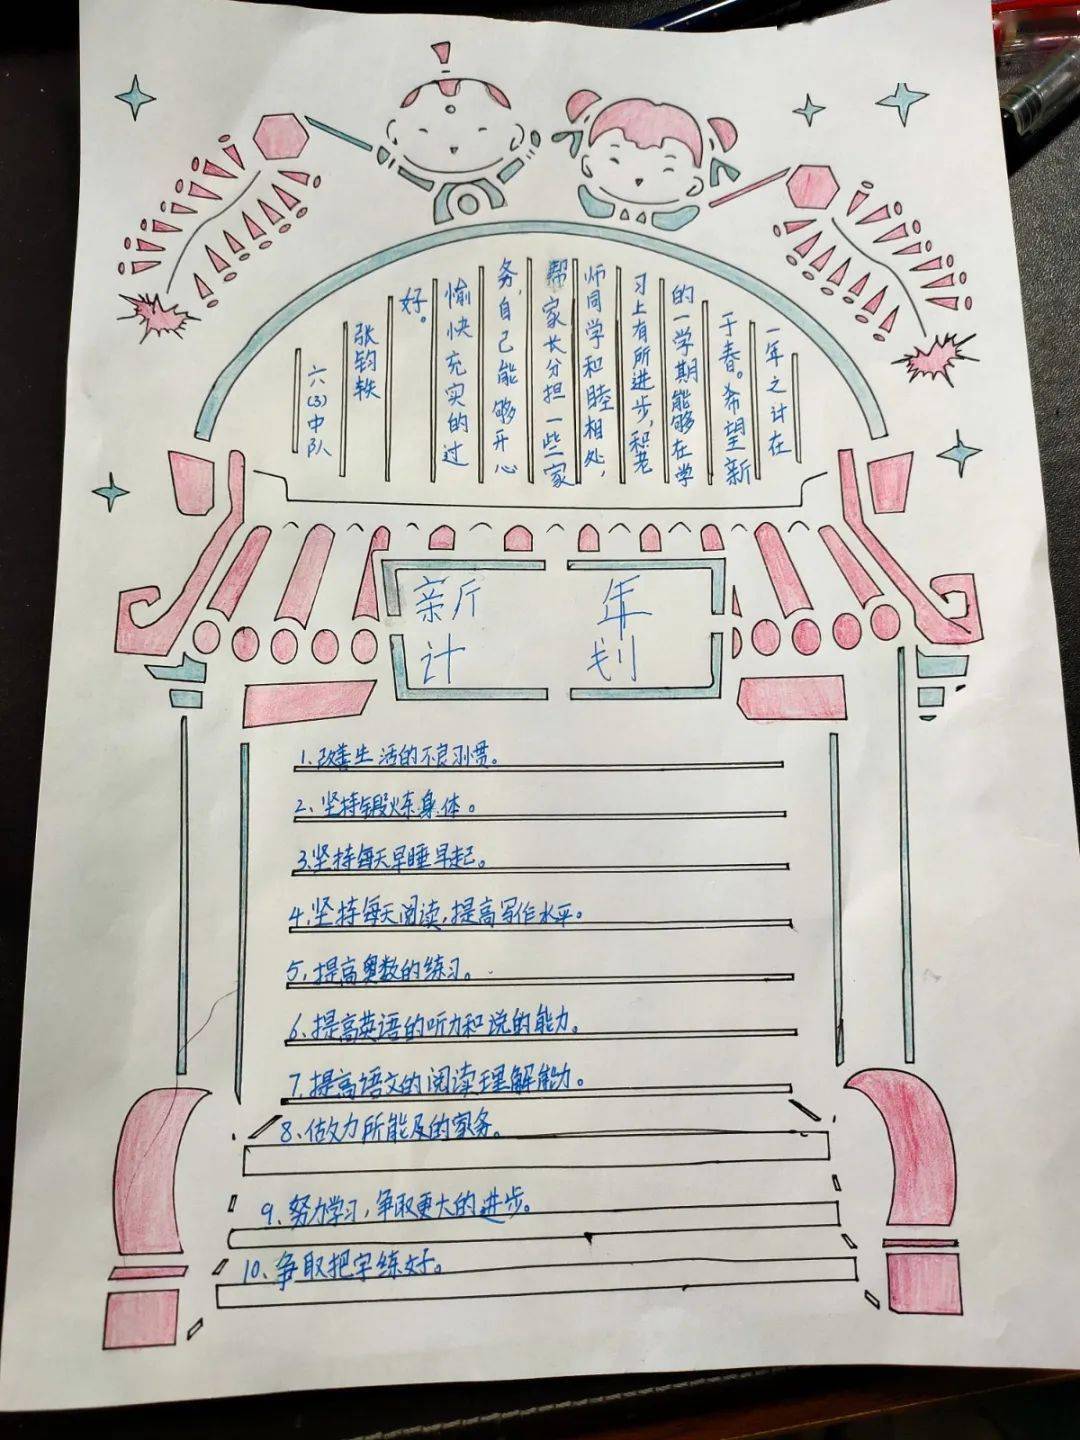 一年之计在
于春。希望新
的一学期能够在学
习上有所进步,和老
师同学和睦相处,
帮家长分担一些家
务,自己能够开心
愉快充实的过
好。
张钧轶
六(3)中队
新年
计划
1、改善生活的不良习惯。
2、坚持锻炼身体。
3、坚持每天早睡早起。
4、坚持每天阅读,提高写作水平。
5、提高奥数的练习。
6、提高英语的听力和说的能力。
7、提高语文的阅读理解能力。
8、做力所能及的家务。
9、努力学习,争取更大的进步。
10、争取把字练好。